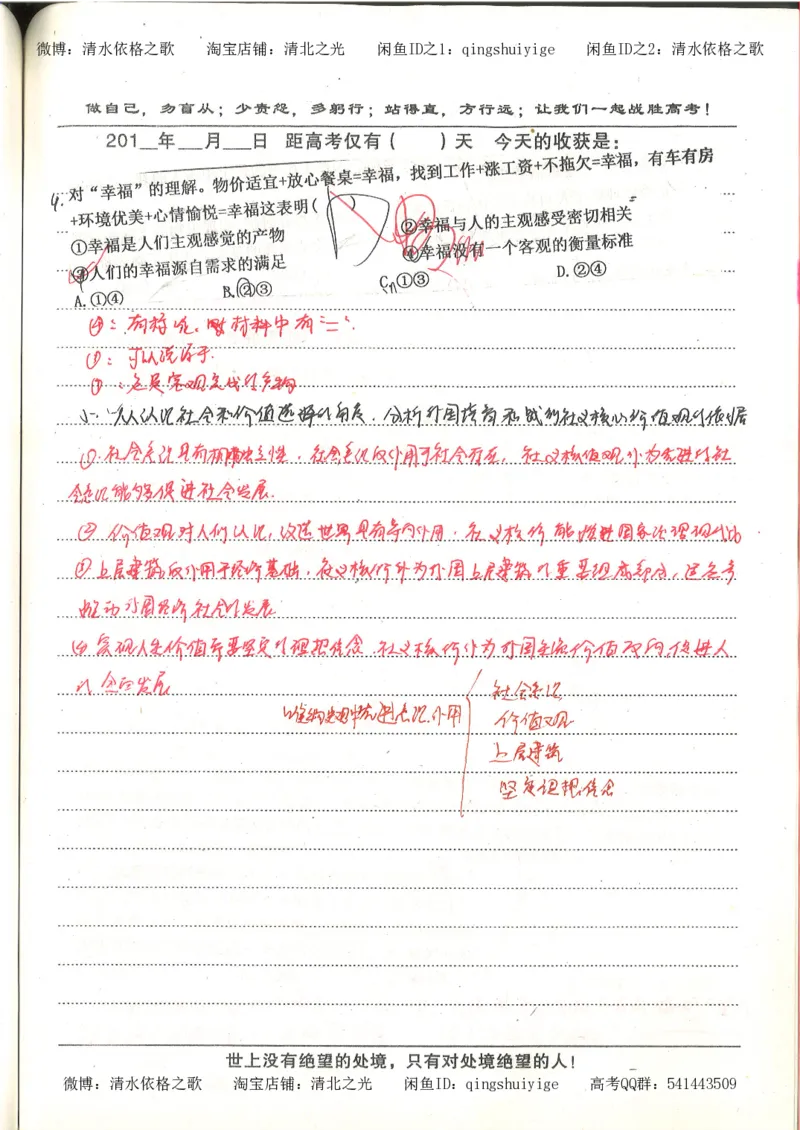 微博：清水依格之歌 淘宝店铺：清北之光 闲鱼ID之1：qingshuiyige 闲鱼ID之2：清水依格之歌
做自己，勿盲从；少责怨，多躬行；站得直，方行远；让我们一起战胜高考！
201__年___月___日 距高考仅有（ ）天 今天的收获是：
4. 对“幸福”的理解。物价适宜+放心餐桌=幸福，找到工作+涨工资+不拖欠=幸福，有车有房
+环境优美+心情愉悦=幸福这表明( )
①幸福是人们主观感觉的产物 ②幸福与人的主观感受密切相关
③人们的幸福源自需求的满足 ④幸福没有一个客观的衡量标准
A.①④ B.②③ C.①③ D.②④
④：有标准。材料中有“=”.
①：
①
从认识社会和价值选择的角度.分析我国培育和践行社义核心价值观的依据
①.社会意识具有相对独立性.社会意识反作用于社会存在，社义核价值观作为先进的社
会意识能够促进社会发展.
②价值观对人们认识，改造世界具有导向作用.社义核价能推进国家治理现代化
③上层建筑反作用于经济基础.社义核价作为我国上层建筑的重要组成部分，
推动我国经济社会的发展
④实现人生价值需要坚定的理想信念.社义核价作为我国价值取向.促进人
的全面发展
社会意识
作用 价值观
上层建筑
坚定理想信念
世上没有绝望的处境，只有对处境绝望的人！
微博：清水依格之歌 淘宝店铺：清北之光 闲鱼ID：qingshuiyige 高考QQ群：541443509